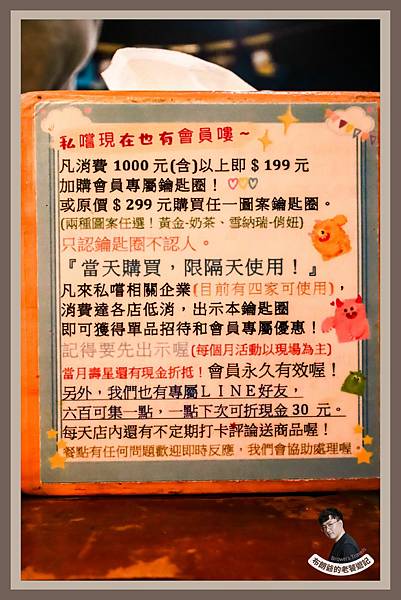 私嚐現在也有會員嘍～
凡消費 1000 元(含)以上即 $ 199 元
加購會員專屬鑰匙圈！
或原價 $ 299 元購買任一圖案鑰匙圈。
(兩種圖案任選！黃金-奶茶、雪納瑞-俏妞)
只認鑰匙圈不認人。
『當天購買，限隔天使用！』
凡來私嚐相關企業(目前有四家可使用)，
消費達各店低消，出示本鑰匙圈
即可獲得單品招待和會員專屬優惠！
記得要先出示喔(每個月活動以現場為主)
當月壽星還有現金折抵！會員永久有效喔！
另外，我們也有專屬ＬＩＮＥ好友，
六百可集一點，一點下次可折現金 30 元。
每天店內還有不定期打卡評論送商品喔！
餐點有任何問題歡迎即時反應，我們會協助處理喔。
布朗爺的老饕遊記